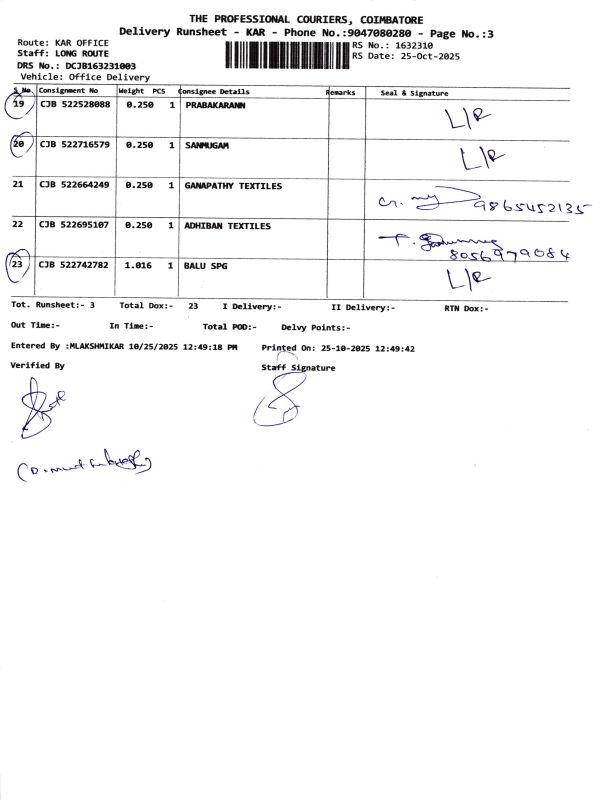 THE PROFESSIONAL COURIERS, COIMBATORE
Delivery Runsheet - KAR - Phone No.:9047080280 - Page No.:3
Route: KAR OFFICE
RS No.: 1632310
Staff: LONG ROUTE
RS Date: 25-Oct-2025
DRS No.: DCJB163231003
Vehicle: Office Delivery
S No. Consignment No Weight PCS Consignee Details Remarks Seal & Signature
19 CJB 522528088 0.250 1 PRABAKARANN L/R
20 CJB 522716579 0.250 1 SANMUGAM L/R
21 CJB 522664249 0.250 1 GANAPATHY TEXTILES 9865452135
22 CJB 522695107 0.250 1 ADHIBAN TEXTILES 8056979084
23 CJB 522742782 1.016 1 BALU SPG L/R
Tot. Runsheet:- 3 Total Dox:- 23 I Delivery:- II Delivery:- RTN Dox:-
Out Time:- In Time:- Total POD:- Delvy Points:-
Entered By :MLAKSHMIKAR 10/25/2025 12:49:18 PM Printed On: 25-10-2025 12:49:42
Verified By Staff Signature